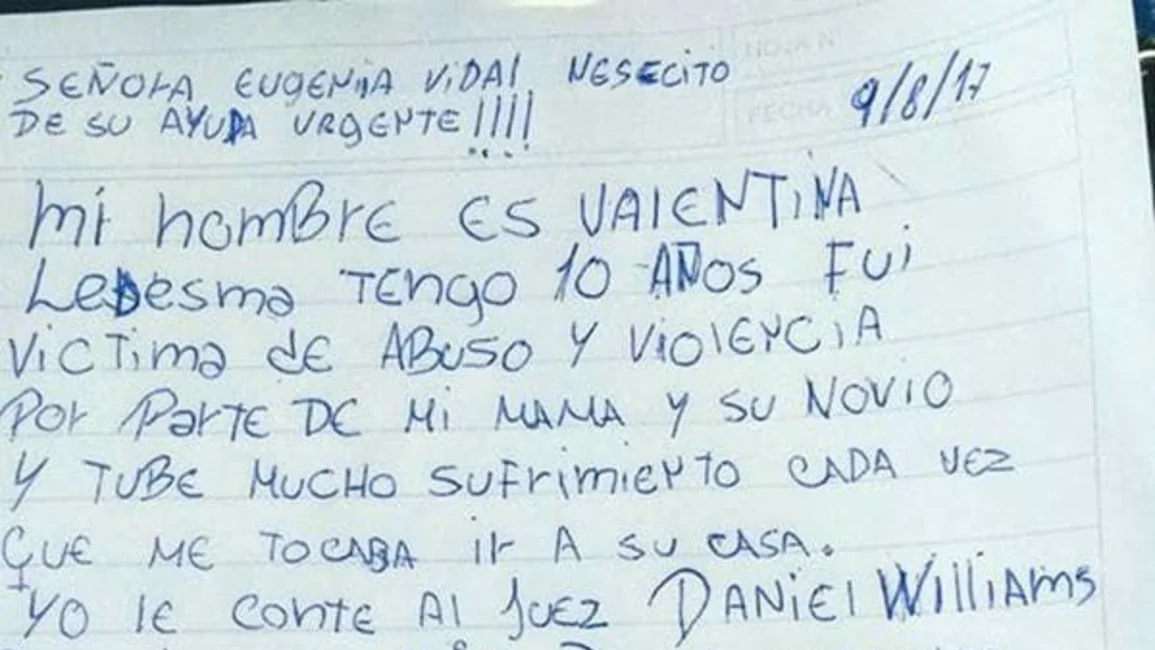 SEÑORA EUGENIA VIDAL NESECITO
DE SU AYUDA URGENTE!!!!
HOJA N
FECHA 9/8/17
Mi nombre es VALENTINA
Ledesma TENGO 10 AÑOS FUI
VICTIMA DE ABUSO Y VIOLENCIA
POR PARTE DE MI MAMA Y SU NOVIO
Y TUBE MUCHO SUFRIMIENTO CADA VEZ
QUE ME TOCABA ir A SU CASA.
YO LE CONTE AL JUEZ DANIEL WILLIAMS